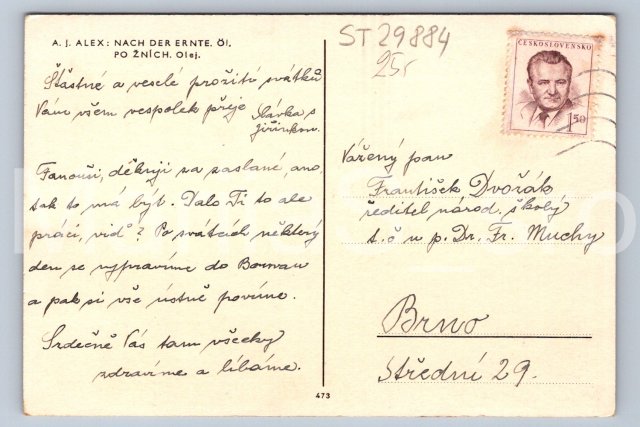 A. J. ALEX: NACH DER ERNTE. Öl.
PO ŽNÍCH. Olej.
Šťastné a veselé prožití svátků
Vám všem vespolek přeje
Slávka s
Jiřinkou.
Fanouši, děkuji za zaslané, ano,
tak to má být. Dalo Ti to ale
práci, viď? Po svátcích některý
den se vypravíme do
a pak si vše ústně povíme.
Srdečně Vás tam všecky
zdravíme a líbáme.
473
ST 29884
25,-
ČESKOSLOVENSKO
1.50
Vážený pan
František Dvořák
ředitel národ. školy
t.č u p. Dr. Fr. Muchy
Brno
Střední 29.